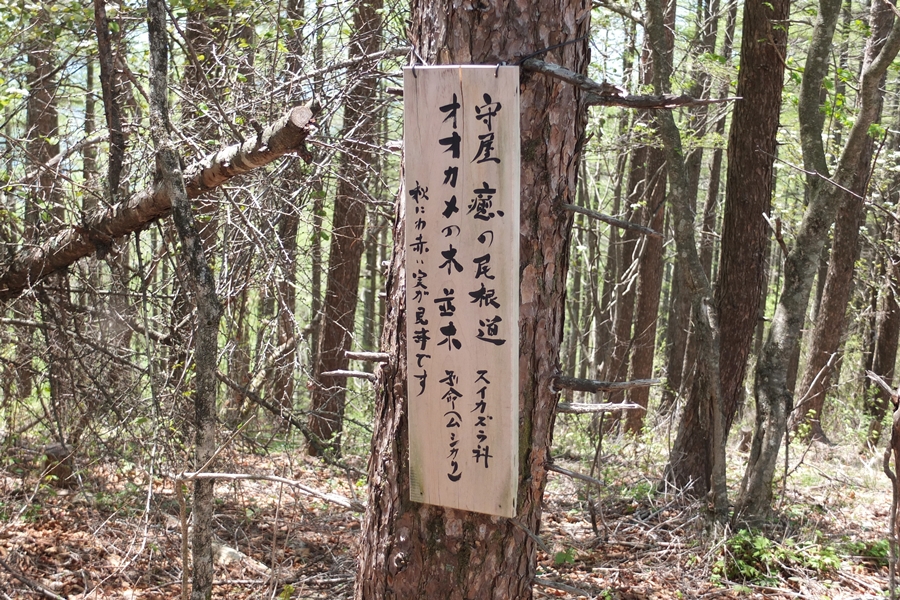 守屋 癒の尾根道 スイカズラ科
オオカメの木 並木 別命(ムシカリ)
秋にわ赤い実が見事です